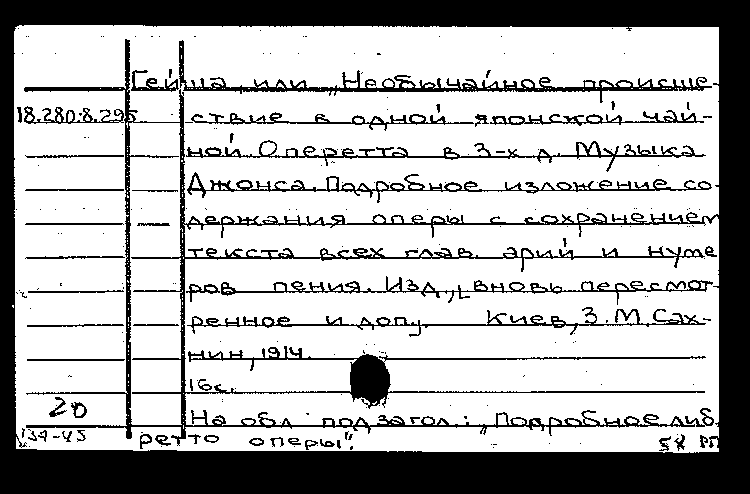 Гейша, или „Необычайное происше-
18.280.8.295 ствие в одной японской чай-
ной Оперетта в 3-х д. Музыка
Джонса. Подробное изложение со-
держания оперы с сохранением
текста всех глав. арий и нуме
ров пения. Изд., вновь пересмот-
ренное и доп. Киев, З.М. Сах-
нин, 1914.
16с.
20 На обл подзагол.: „Подробное либ.
134-45 ретто оперы".